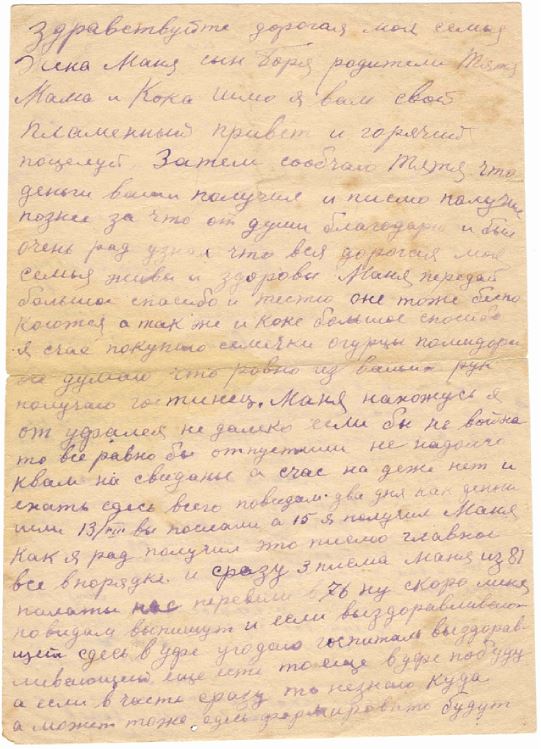 Здравствуйте дорогая моя семья
Жена Маня сын Боря родители Тятя
Мама и Кока шлю я вам свой
пламенный привет и горячий
поцелуй. Затем сообчаю Тятя что
деньги ваши получил и писмо получил
позже за что от души благодарю и был
очень рад узнал что вся дорогая моя
семья живы и здоровы Маня передай
большое спасибо и тестю оне тоже беспо
коются а так же и коке большое спасибо
я счас покупаю семички огурцы помидоры
и думаю что ровно из ваших рук
получаю гостинец. Маня нахожусь я
от удралея не далеко если бы не война
то всё равно бы отпустили не надолго
к вам на свиданье а счас на деже нет и
ехать сдесь всего повидам два дня как деньги
шли 13/VIII вы послали а 15 я получил Маня
Как я рад получил это писмо главное
все в порядке и сразу 3 писма Маня из 81
палаты нас перевели в 76 ну скоро меня
по видам выпишут и если выздоравливаю
щей сдесь в уфе угодаю госпиталь выздорав-
ливающий еще есть то еще в уфе побуду
а если в часть сразу то незнаю куда
а может тоже сдесь формироваться будут